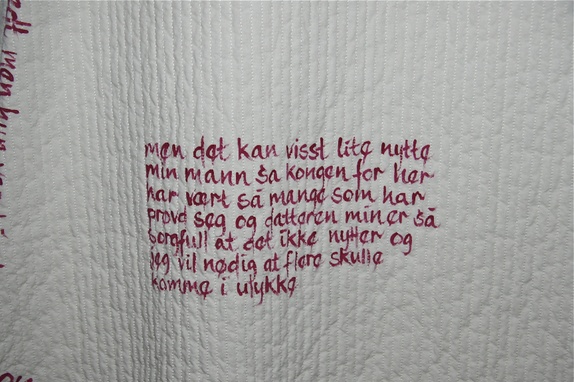 men det kan visst lite nytte
min mann sa kongen for her
har vært så mange som har
prøvd seg og datteren min er så
sorgfull at det ikke nytter og
jeg vil nødig at flere skulle
komme i ulykke